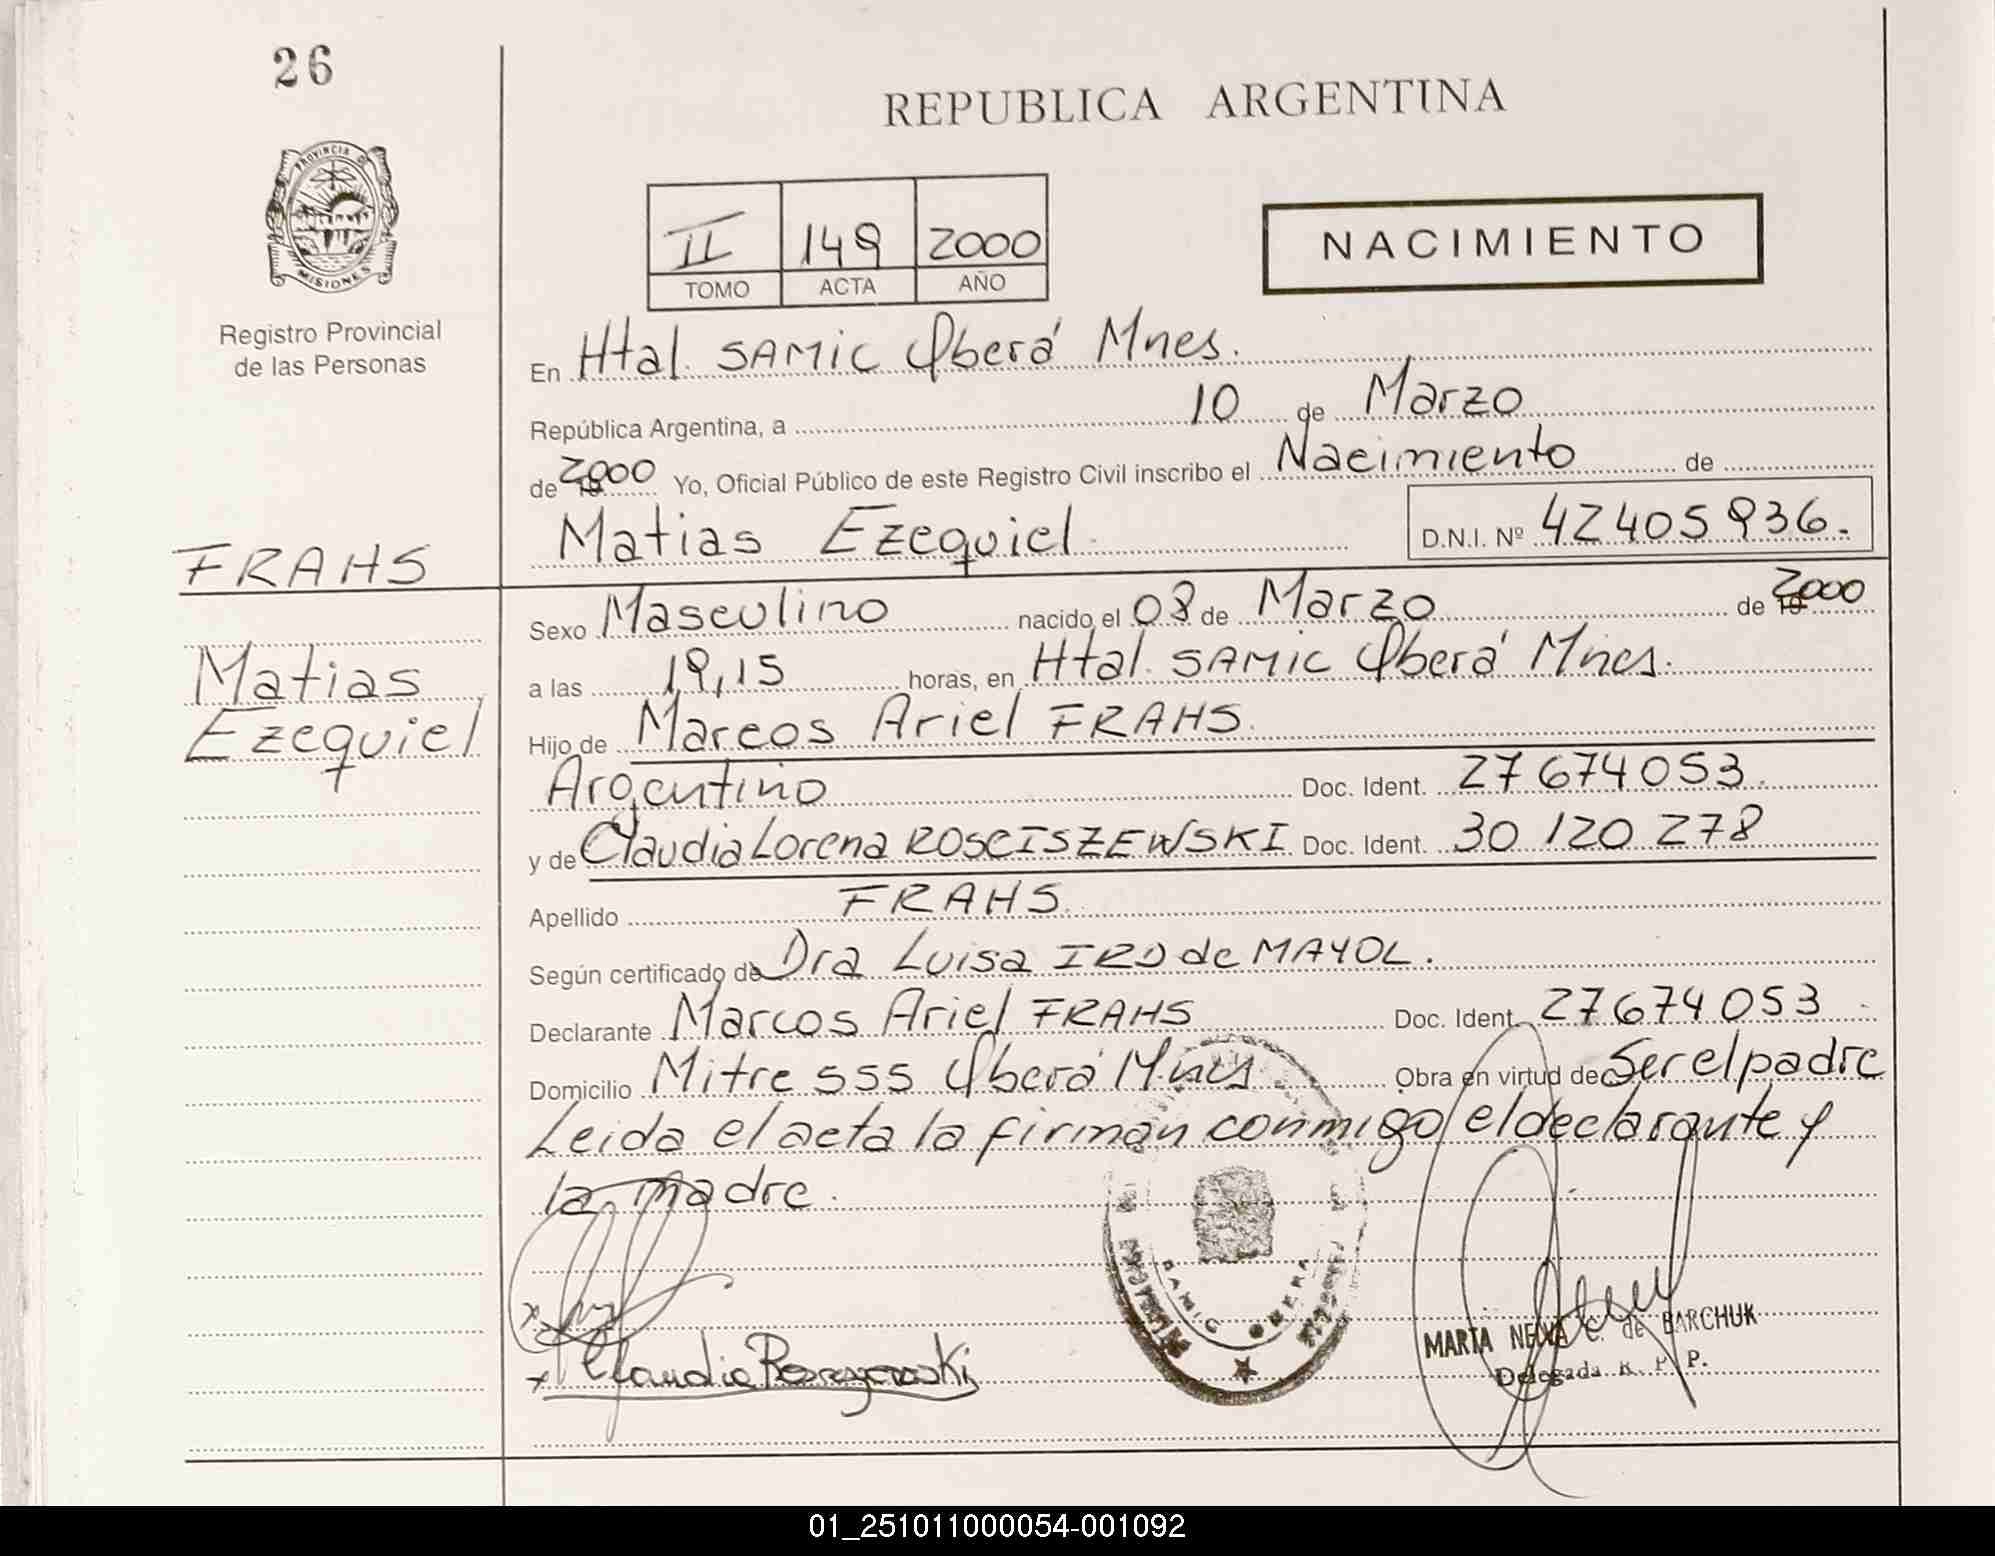 26
REPUBLICA ARGENTINA
PROVINCIA DE
MISIONES
Registro Provincial
de las Personas
II 149 2000
TOMO ACTA AÑO
NACIMIENTO
En Htal. SAMIC Oberá Mnes.
República Argentina, a 10 de Marzo
de 2000 Yo, Oficial Público de este Registro Civil inscribo el Nacimiento de
Matias Ezequiel D.N.I. Nº 42405936.
FRAHS
Matias
Ezequiel
Sexo Masculino nacido el 08 de Marzo de 2000
a las 19,15 horas, en Htal. SAMIC Oberá Mnes.
Hijo de Marcos Ariel FRAHS.
Argentino Doc. Ident. 27674053.
y de Claudia Lorena ROSCISZEWSKI Doc. Ident. 30 120 278
Apellido FRAHS.
Según certificado de Dra Luisa IRD de MAYOL.
Declarante Marcos Ariel FRAHS Doc. Ident. 27674053
Domicilio Mitre 555 Oberá Mnes Obra en virtud de Ser el padre
Leida el acta la firman conmigo el declarante y
la madre.
SAMIC OBERA
MARTA NELVA C. de BARCHUK
Delegada R. P. P.
x Claudia
01_251011000054-001092